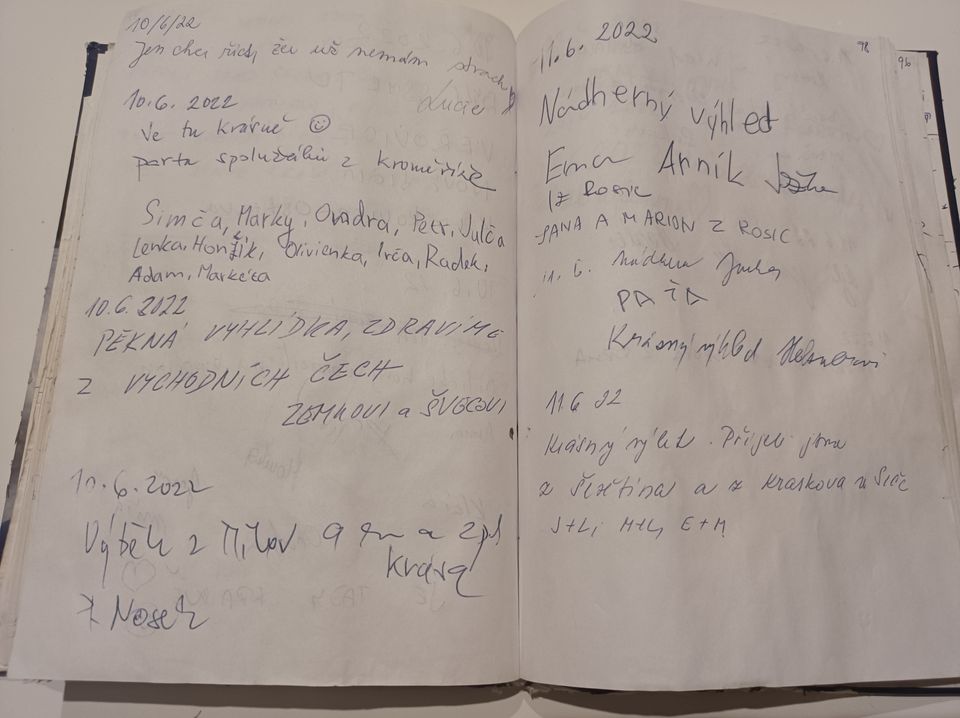 10/6/22
Jen chci říct, že už nemám strach
Lucie
10.6. 2022
Je tu krásně ☺
parta spolužáků z Kroměříže
Simča, Marky, Ondra, Petr, Julča
Lenka, Honzík, Olivienka, Irča, Radek,
Adam, Markéta
10.6.2022
PĚKNÁ VYHLÍDKA, ZDRAVÍME
Z VÝCHODNÍCH ČECH
ZEMKOVI a ŠVECOVI
10.6.2022
Výběh z 9 km a zpět
krása
Nosek
98
96
11.6. 2022
Nádherný výhled
Ema Arník
z Rosic
JANA A MARION Z ROSIC
11. 6. nádhera
PÁŤA
Krásný výhled
11.6 22
Krásný výlet. Přijeli jsme
z a z Kraskova u Seče
J+L, M+L, E+M